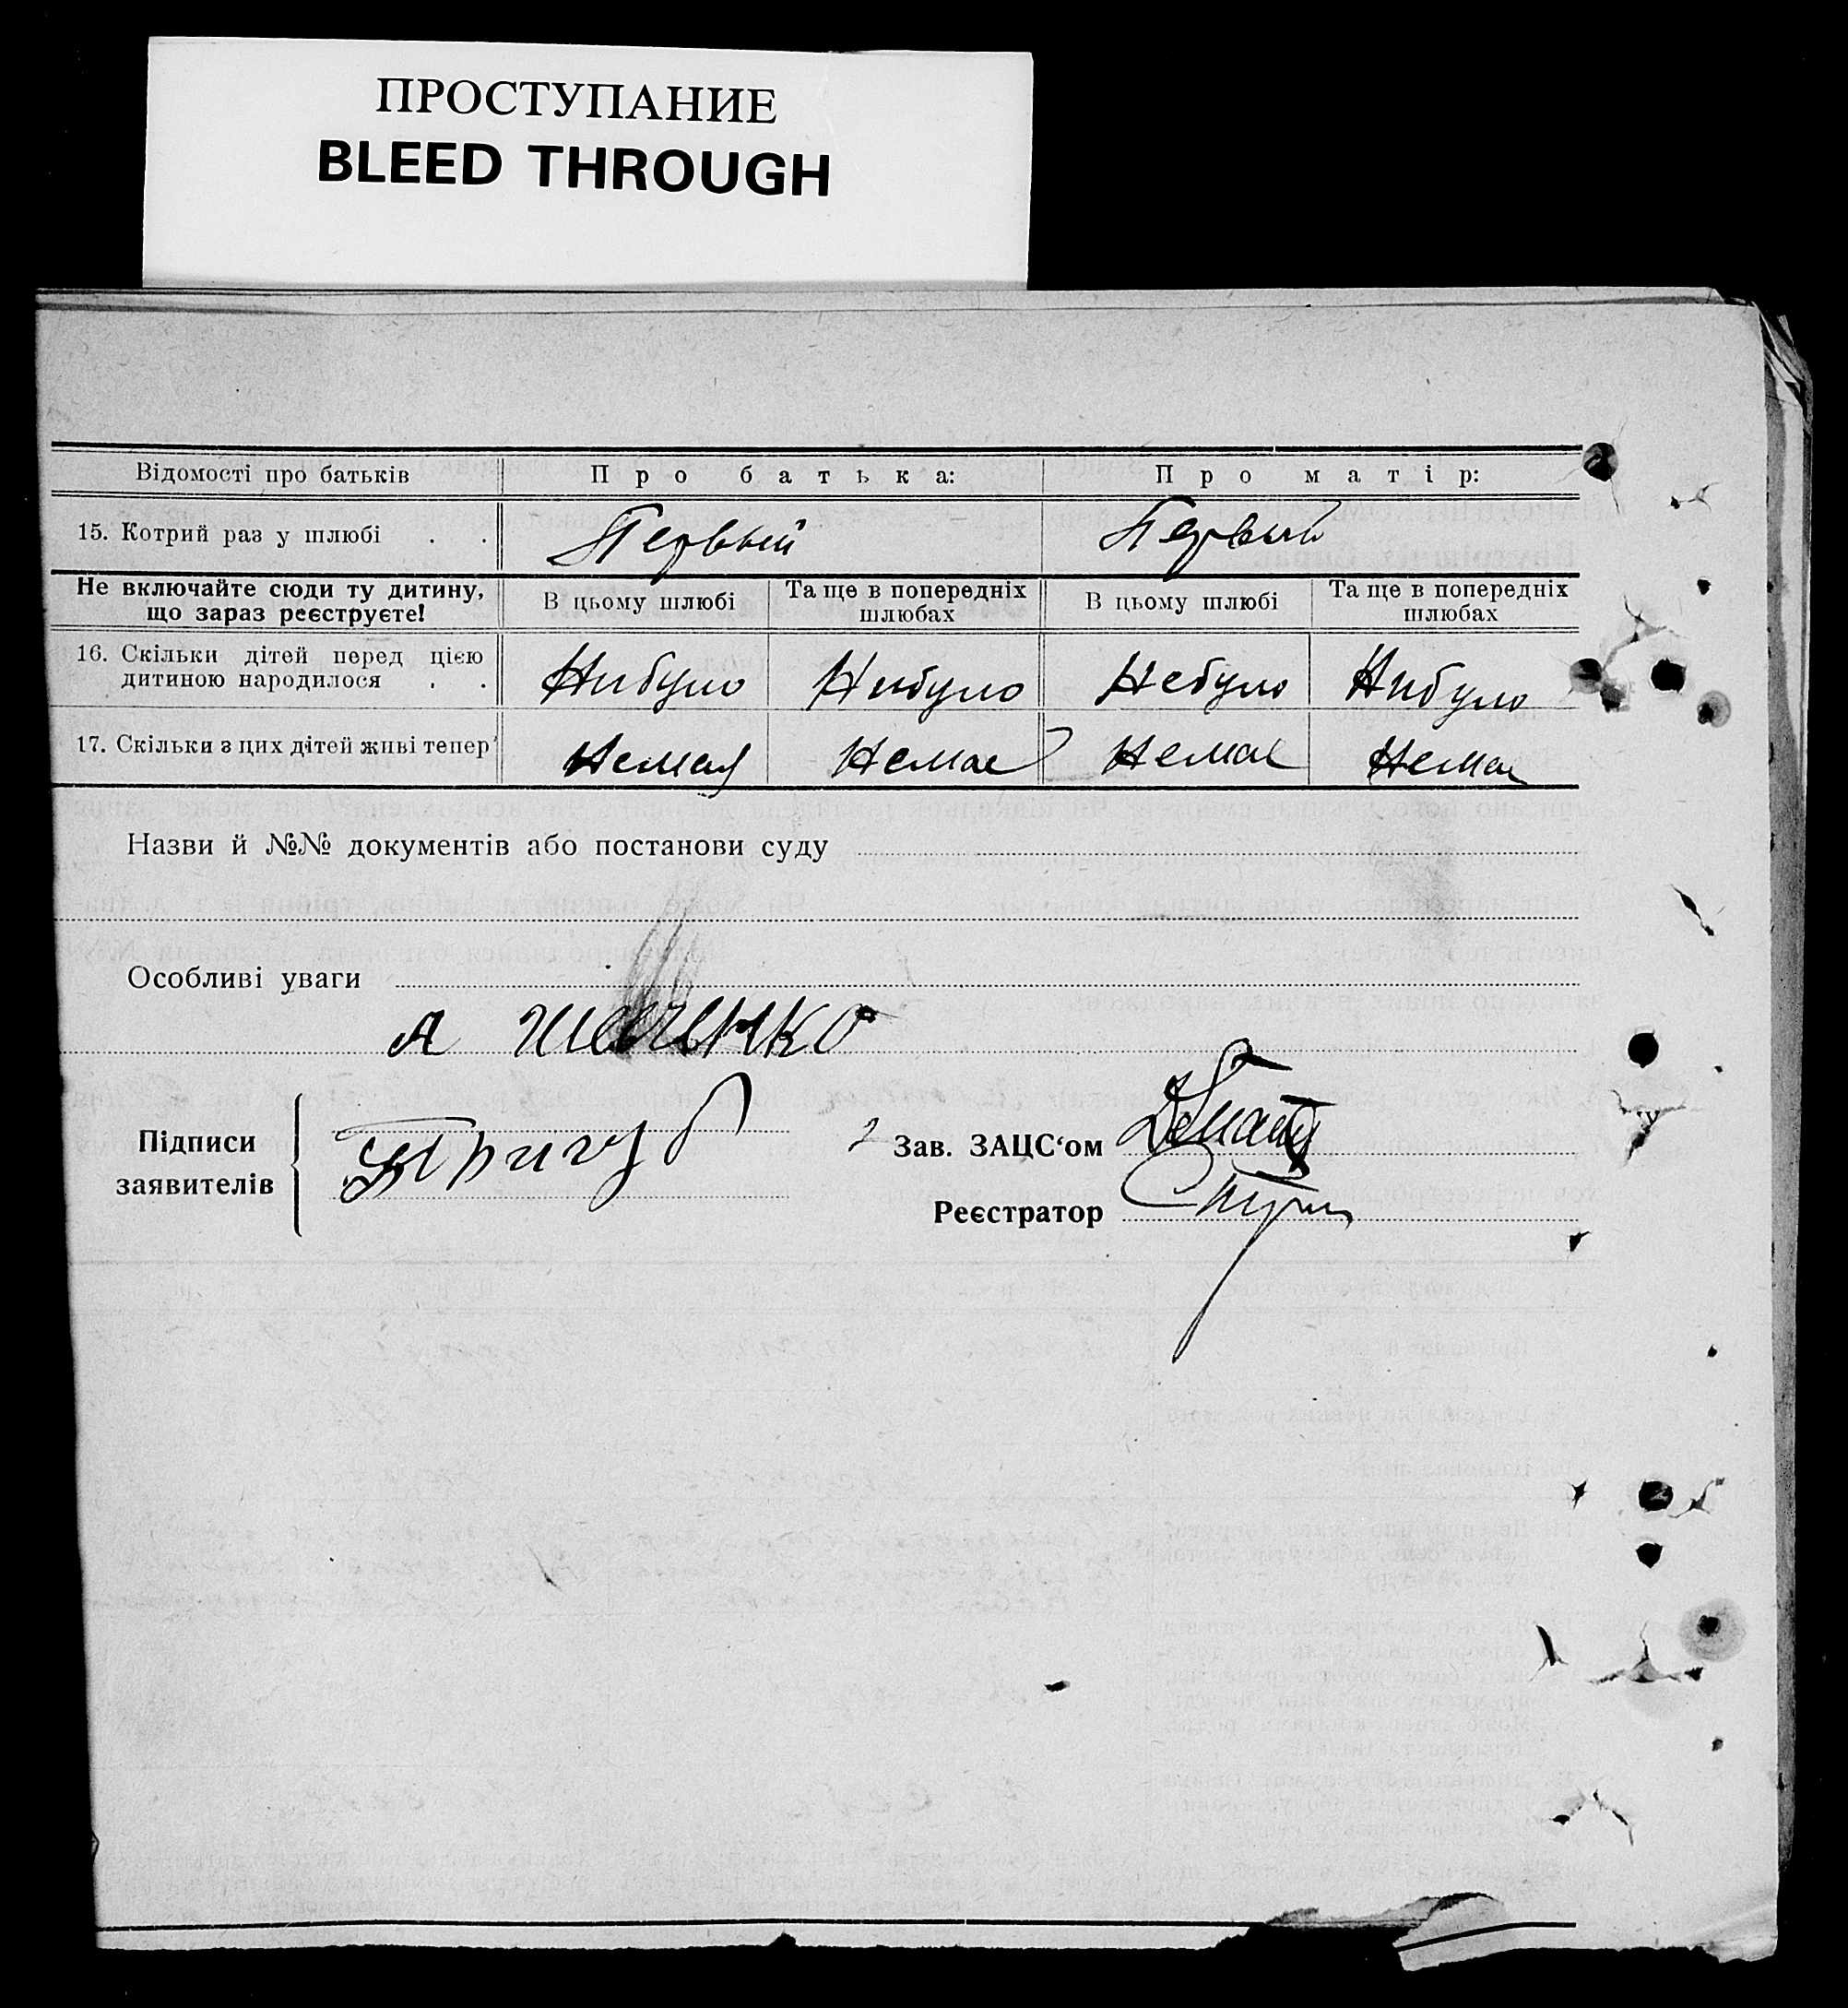 ПРОСТУПАНИЕ
BLEED THROUGH
Відомості про батьків Про батька: Про матір:
15. Котрий раз у шлюбі . . Первый Первый
Не включайте сюди ту дитину, що зараз реєструєте! В цьому шлюбі Та ще в попередніх шлюбах В цьому шлюбі Та ще в попередніх шлюбах
16. Скільки дітей перед цією дитиною народилося . . Нибуло Нибуло Небуло Нибуло
17. Скільки з цих дітей живі тепер Немая Немае Немае Немае
Назви й №№ документів або постанови суду
Особливі уваги
А
Підписи заявителів
Тригуб
Зав. ЗАЦС‘ом
Реєстратор